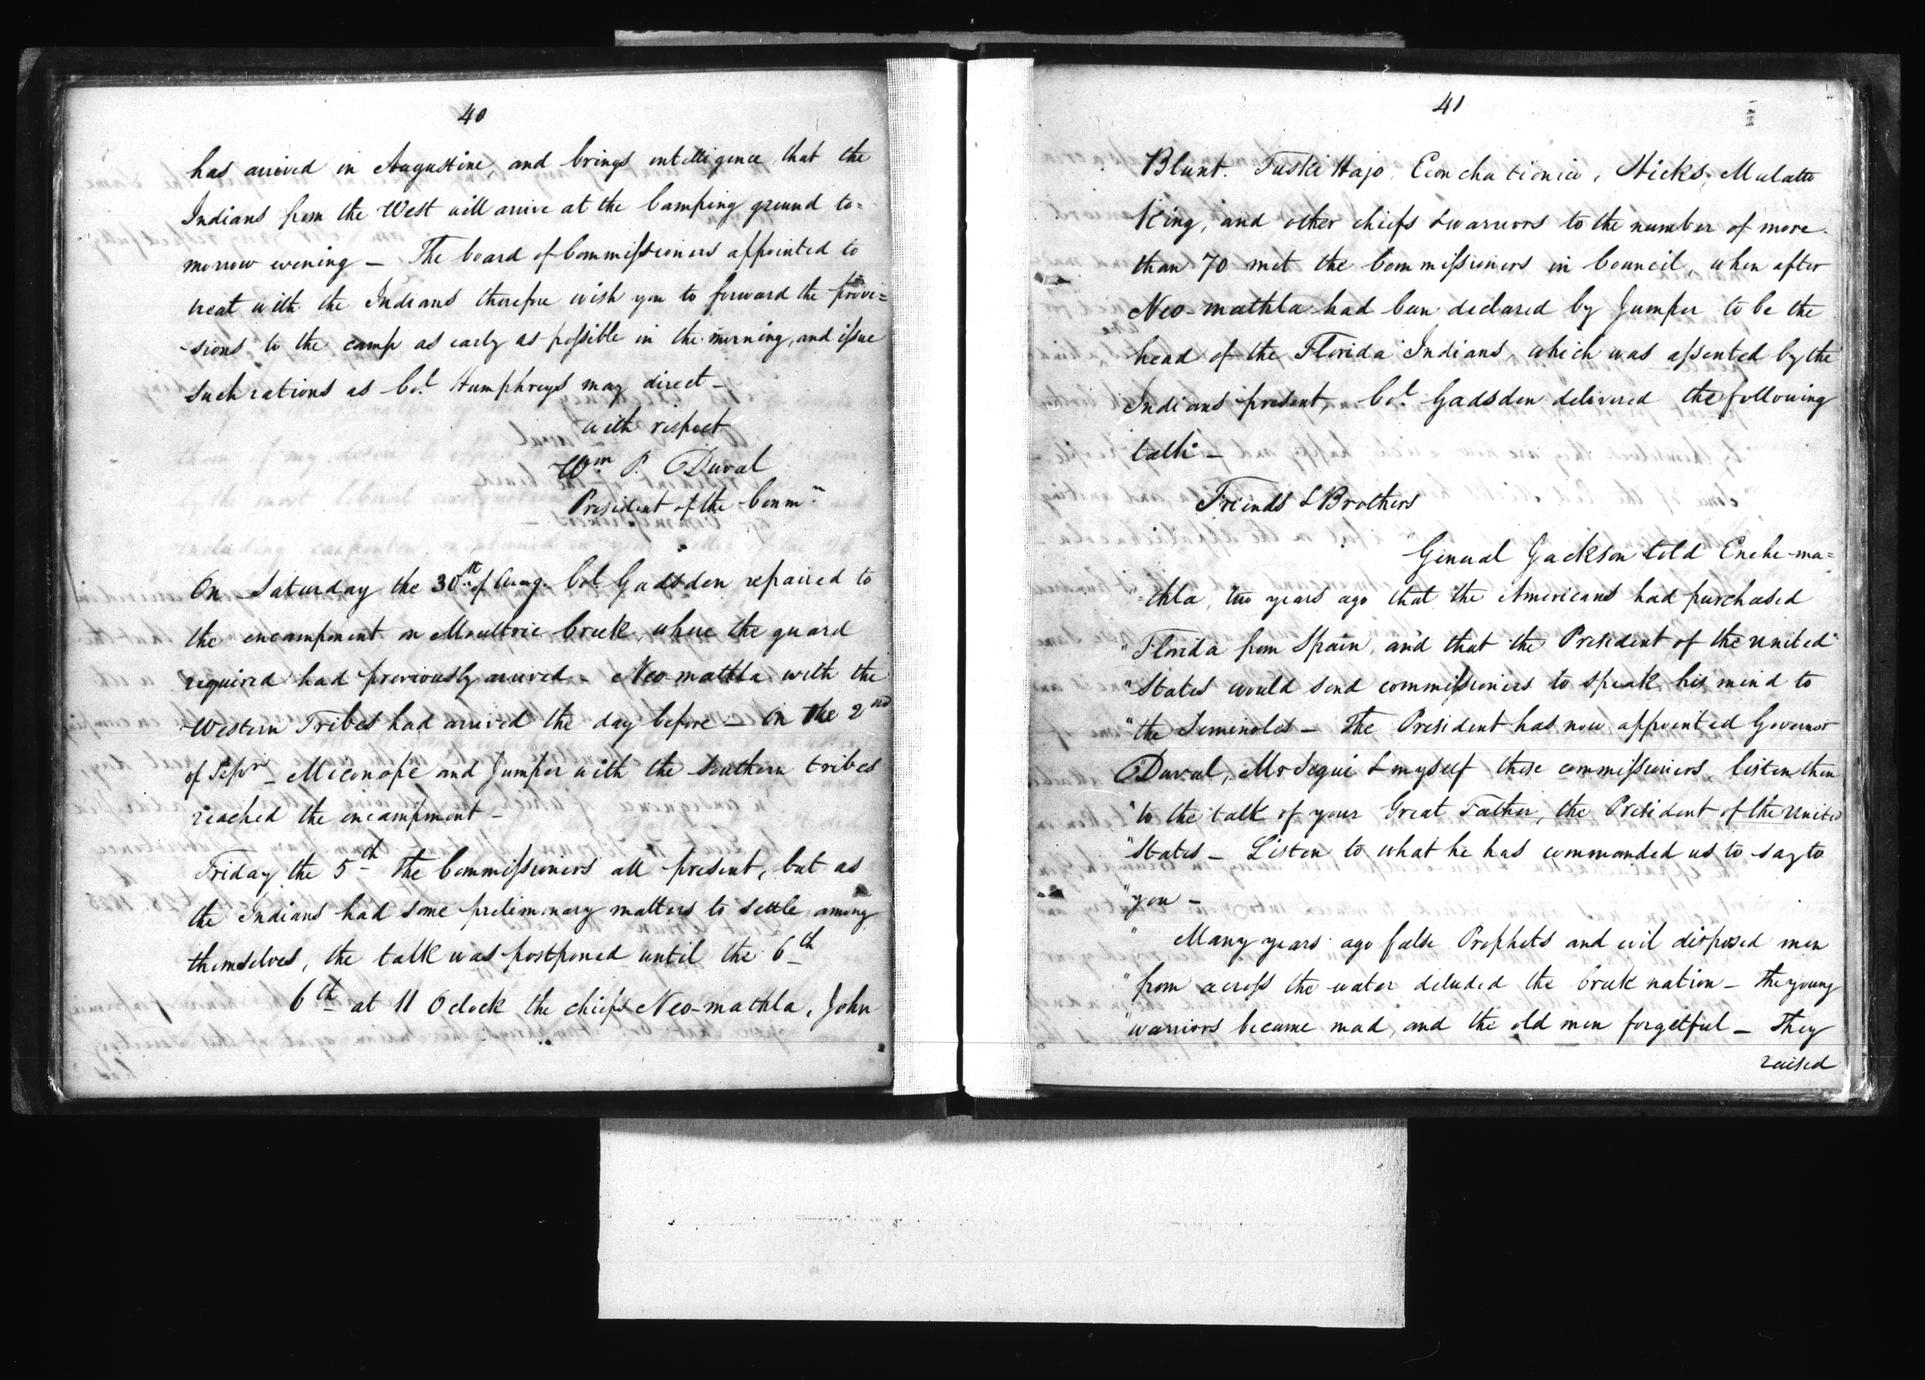 40
has arrived in Augustine, and brings intelligence that the
Indians from the West will arrive at the Camping ground to-
morrow evening - The board of Commissioners appointed to
treat with the Indians therefore wish you to forward the provi=
-sions to the camp as early as possible in the morning, and issue
such rations as Col. Humphreys may direct -
with respect
Wm P. Duval
President of the Comm
On Saturday the 30th of Aug. Col. Gadsden repaired to
the encampment on Moultrie Creek, where the guard
required had previously arrived - Neo-mathla with the
Western Tribes had arrived the day before - On the 2nd
of Sepr - Meconope and Jumper with the Southern tribes
reached the encampment -
Friday the 5th The Commissioners all present, but as
the Indians had some preliminary matters to settle among
themselves, the talk was postponed until the 6th
6th at 11 Oclock the chiefs Neo-mathla, John
41
Blunt. Tuski Hajo, Econchationico, Hicks, Mulatto
King, and other chiefs & warriors to the number of more
than 70 met the Commissioners in Council, when after
Neo-mathla had been declared by Jumper to be the
head of the Florida Indians, which was assented by the
Indians present, Col. Gadsden delivered the following
talk -
Friends & Brothers
General Jackson told Enehe-ma=
"-thla, two years ago that the Americans had purchased
"Florida from Spain, and that the President of the United
"States would send commissioners to speak his mind to
"the Seminoles - The President has now appointed Governor
"Duval, Mr Segui & myself those commissioners, listen then
"to the talk of your Great Father, the President of the United
"States - Listen to what he has commanded us to say to
"you -
" Many years ago false Prophets and evil disposed men
"from across the water deluded the Creek nation - the young
"warriors became mad, and the old men forgetful - They
raised